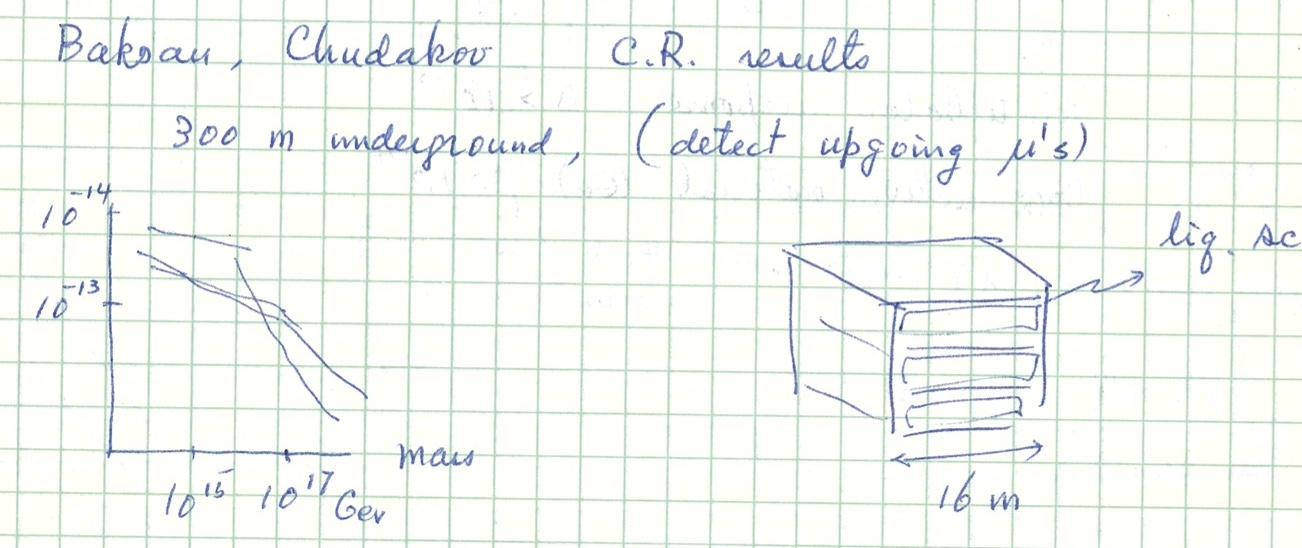 Baksan, Chudakov C.R. results
300 m underground, (detect upgoing μ's)
10⁻¹⁴
liq. sc
10⁻¹³
mass
10¹⁵ 10¹⁷ Gev
16 m